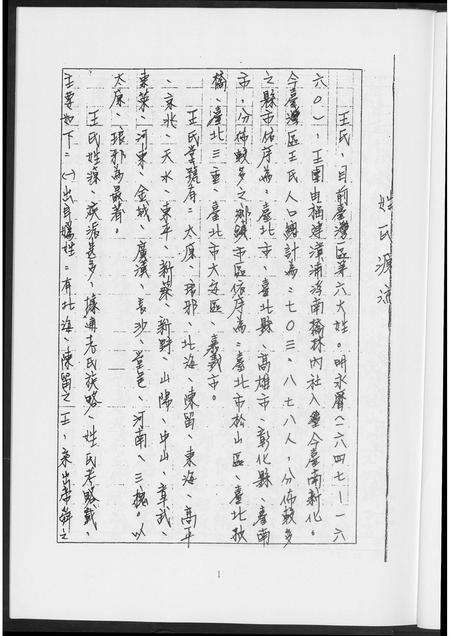 姓氏源流
王氏、目前臺灣區第六大姓。明永曆(一六四七—一六
六〇)、王團由福建漳浦海南橋林內社入墾今臺南新化。
今臺灣區王氏人口總計為:七〇三、八七八人,分佈較多
之縣市依序為:臺北市、臺北縣、高雄市、彰化縣、臺南
市,分佈較多之鄉鎮市區依序為:臺北市松山區、臺北板
橋、臺北三重、臺北市大安區、嘉義市。
王氏堂號有:太原、瑯邪、北海、陳留、東海、高平
、京兆、天水、東平、新蔡、新野、山陽、中山、章武、
東萊、河東、金城、廣漢、長沙、堂邑、河南、三槐。以
太原、瑯邪為最著。
王氏姓源、疾派甚多、據通志氏族略、姓氏考略載、
主要如下:(一)出自媯姓:有北海、陳留之王、系出帝舜之
1